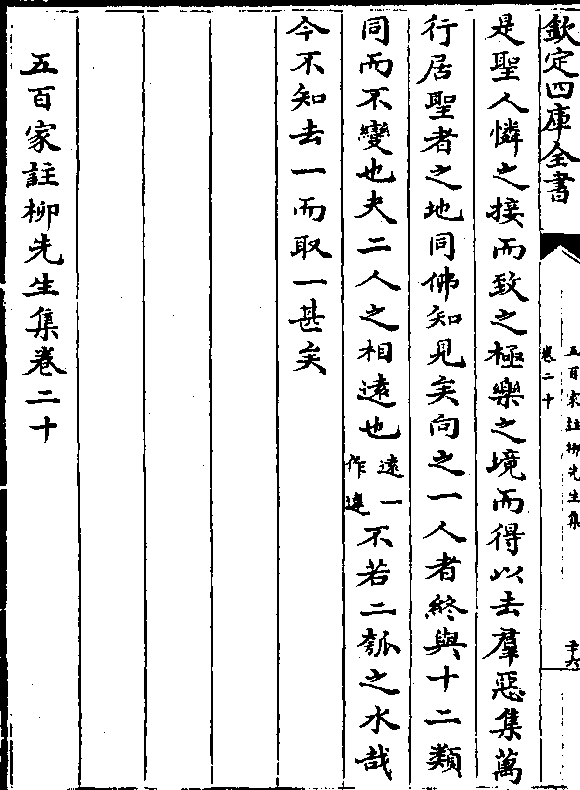 欽定四庫全書
五百家註柳先生集
卷二十
是聖人憐之接而致之極樂之境而得以去羣惡集萬
行居聖者之地同佛知見矣向之一人者終與十二類
同而不變也夫二人之相遠也遠一作違不若二瓠之水哉
今不知去一而取一甚矣
五百家註柳先生集卷二十